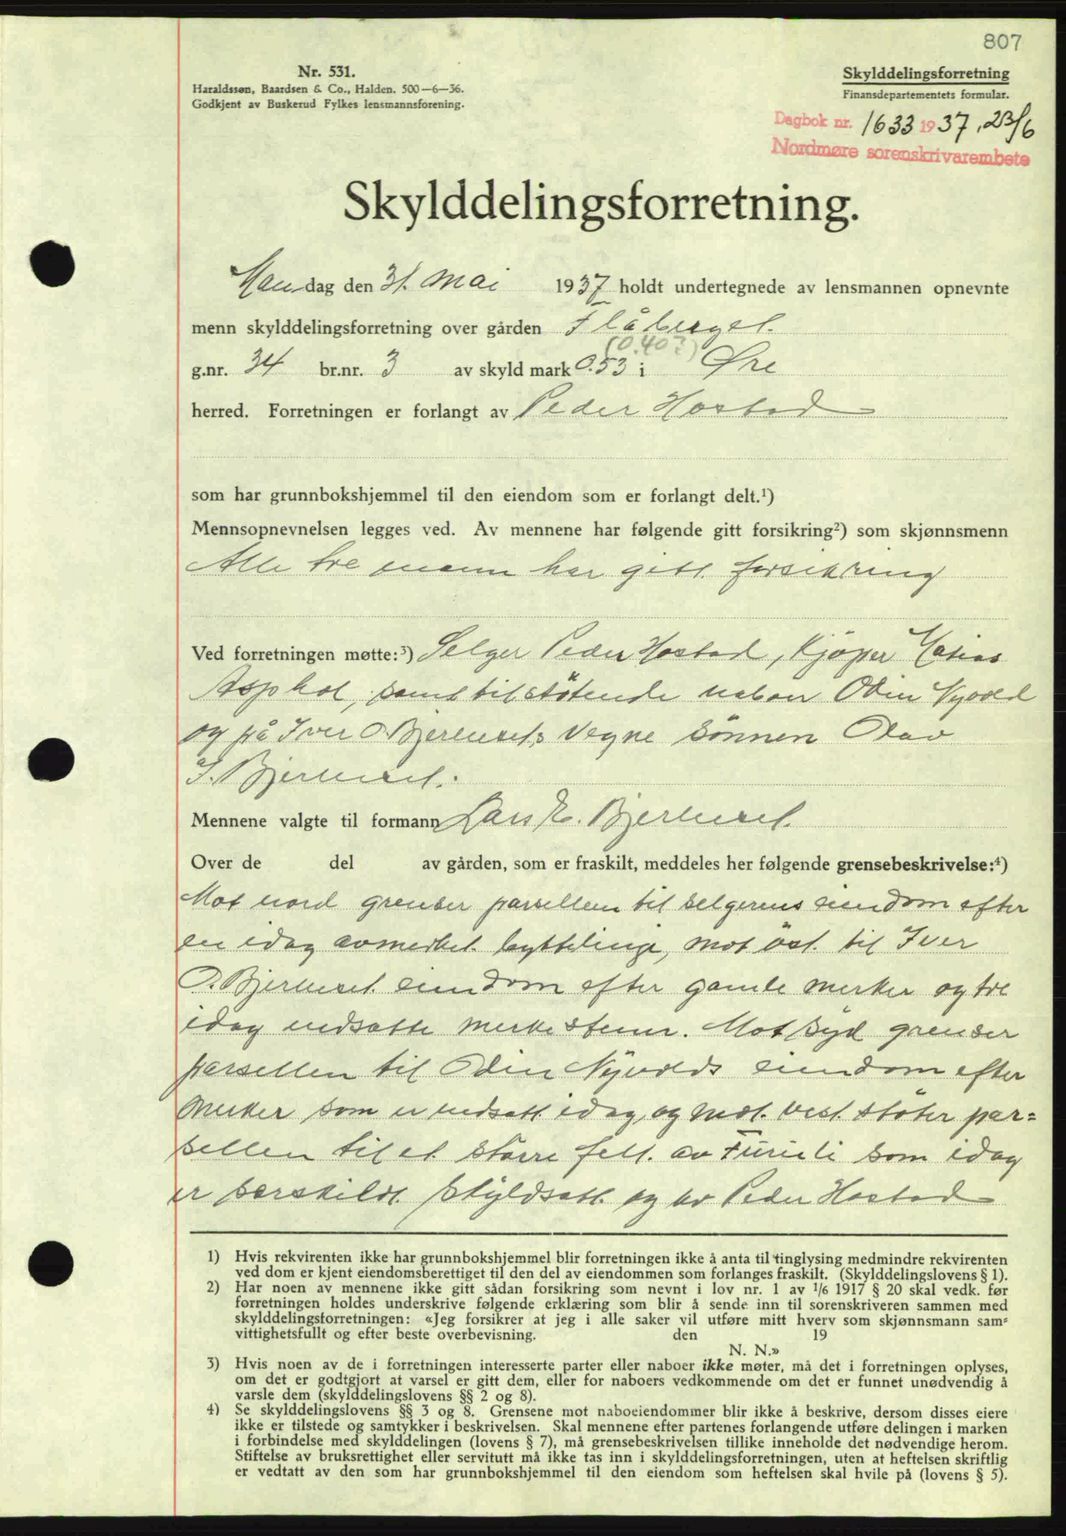 807
Nr. 531.
Haraldssøn, Baardsen & Co., Halden. 500—6—36.
Godkjent av Buskerud Fylkes lensmannsforening.
Skylddelingsforretning
Finansdepartementets formular.
Dagbok nr. 1633 1937, 23/6
Nordmøre sorenskrivarembete
Skylddelingsforretning.
Mandag den 31. mai 1937 holdt undertegnede av lensmannen opnevnte
menn skylddelingsforretning over gården Flåberget.
(0.40?)
g.nr. 34 br.nr. 3 av skyld mark 0.53 i Øre
herred. Forretningen er forlangt av Peder Hostad
som har grunnbokshjemmel til den eiendom som er forlangt delt.¹)
Mennsopnevnelsen legges ved. Av mennene har følgende gitt forsikring²) som skjønnsmenn
Alle tre menn har gitt forsikring
Ved forretningen møtte:³) Selger Peder Hostad, Kjöper Matias
Asphol, samt tilstötende naboer Odin Nyvold
og på Iver O. Bjerkeset,s vegne sönnen Olav
I. Bjerkeset.
Mennene valgte til formann Lars E. Bjerkeset.
Over de del av gården, som er fraskilt, meddeles her følgende grensebeskrivelse:⁴)
Mot nord grenser parsellen til selgerens eiendom efter
en idag avmerket byttelinje, mot öst. til Iver
O. Bjerkeset eiendom efter gamle merker og tre
idag nedsatte merkestener. Mot syd grenser
parsellen til Odin Nyvolds eiendom efter
merker som er nedsatt idag, og mot. vest. stöter par=
sellen til et större felt. av Furuli som idag
er særskildt skyldsatt. og av Peder Hostad
1) Hvis rekvirenten ikke har grunnbokshjemmel blir forretningen ikke å anta til tinglysing medmindre rekvirenten
ved dom er kjent eiendomsberettiget til den del av eiendommen som forlanges fraskilt. (Skylddelingslovens § 1).
2) Har noen av mennene ikke gitt sådan forsikring som nevnt i lov nr. 1 av 1/6 1917 § 20 skal vedk. før
forretningen holdes underskrive følgende erklæring som blir å sende inn til sorenskriveren sammen med
skylddelingsforretningen: «Jeg forsikrer at jeg i alle saker vil utføre mitt hverv som skjønnsmann sam=
vittighetsfullt og efter beste overbevisning. den 19
N. N.»
3) Hvis noen av de i forretningen interesserte parter eller naboer ikke møter, må det i forretningen oplyses,
om det er godtgjort at varsel er gitt dem, eller for naboers vedkommende om det er funnet unødvendig å
varsle dem (skylddelingslovens §§ 2 og 8).
4) Se skylddelingslovens §§ 3 og 8. Grensene mot naboeiendommer blir ikke å beskrive, dersom disses eiere
ikke er tilstede og samtykker i beskrivelsen. Skal mennene efter partenes forlangende utføre delingen i marken
i forbindelse med skylddelingen (lovens § 7), må grensebeskrivelsen tillike inneholde det nødvendige herom.
Stiftelse av bruksrettighet eller servitutt må ikke tas inn i skylddelingsforretningen, uten at heftelsen skriftlig
er vedtatt av den som har grunnbokshjemmel til den eiendom som heftelsen skal hvile på (lovens § 5).